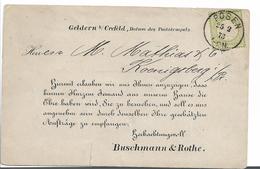 Geldern b/ Crefeld, Datum des Poststempels.
POSEN
Herrn M. Matthias & C
Koenigsberg i/P.
Hiermit erlauben wir uns Ihnen anzuzeigen, dass
binnen Kurzem Jemand aus unserem Hause die
Ehre haben wird, Sie zu besuchen, und soll es uns
angenehm sein durch denselben Ihre geschätzten
Aufträge zu empfangen.
Hochachtungsvoll
Buschmann & Rothe.